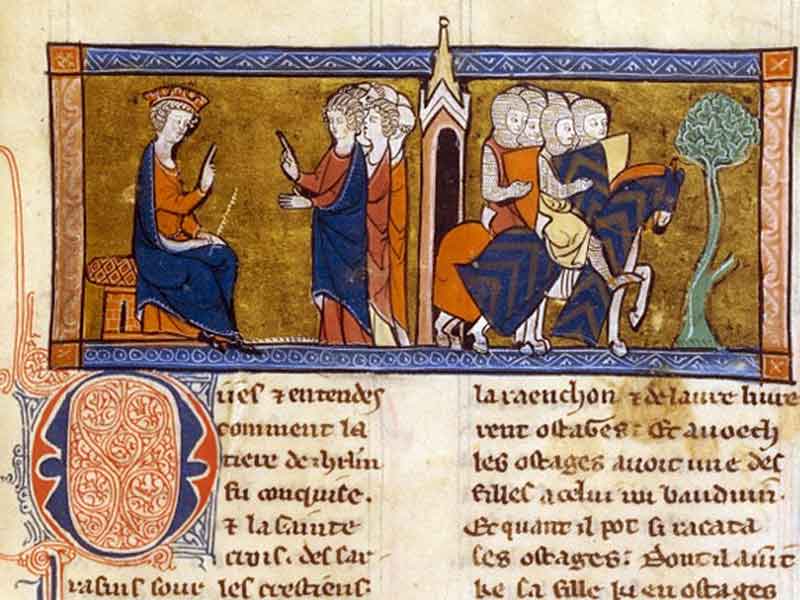 Oiies ⁊ entendes
comment la
tiere de ihrlm
fu conquise.
⁊ la sainte
crois. des sar-
rasins sour les crestiens.
la raenchon ⁊ de lautre liure
rent ostages: Et auoech
les ostages auoit une des
filles a celui roi bauduin.
Et quant il pot si racata
ses ostages: Dont il auit
ke sa fille ki en ostages